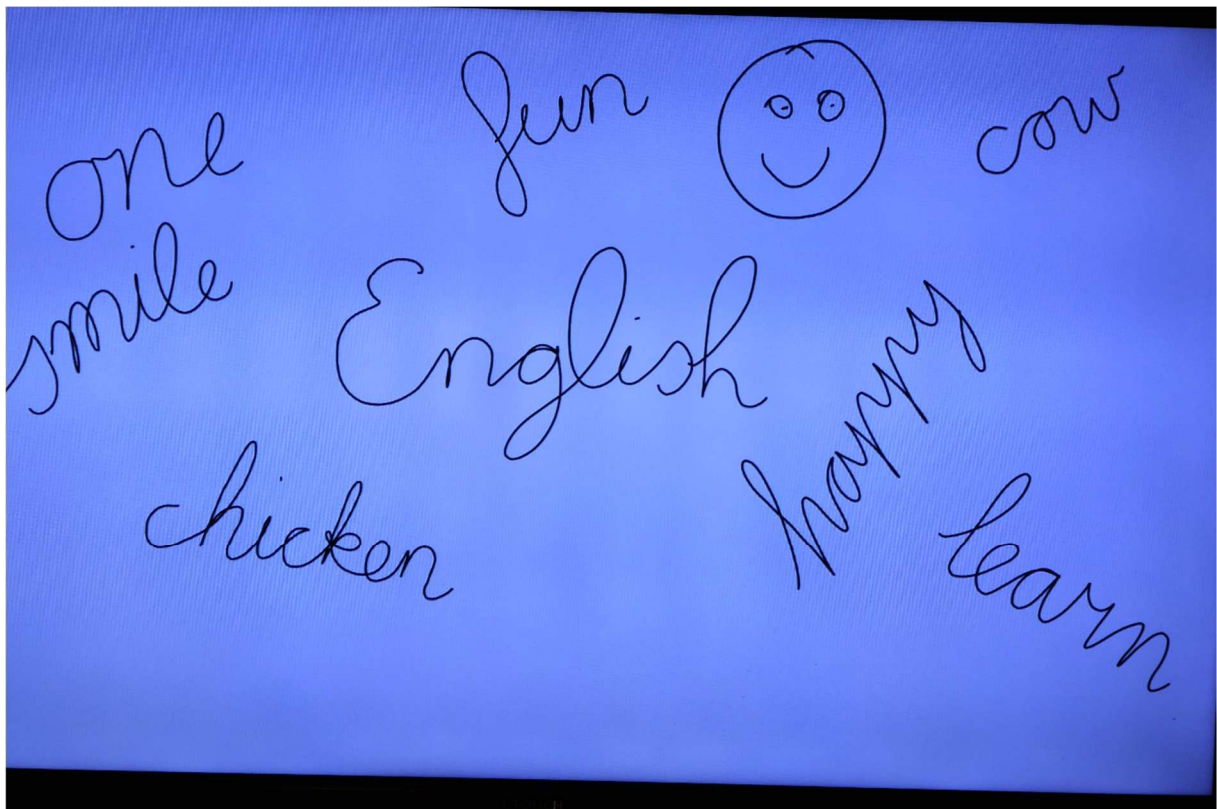 one
fun
cow
smile
English
happy
chicken
learn